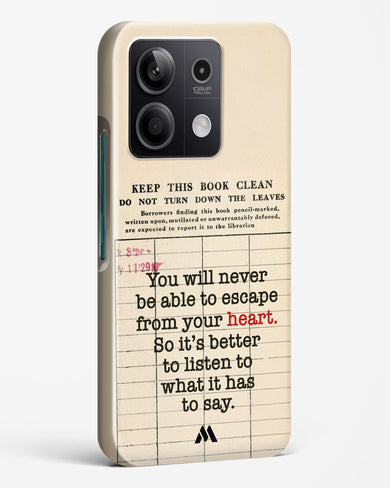 108MP
KEEP THIS BOOK CLEAN
DO NOT TURN DOWN THE LEAVES
Borrowers finding this book pencil-marked,
written upon, mutilated or unwarrantably defaced,
are expected to report it to the librarian
You will never
be able to escape
from your heart.
So it's better
to listen to
what it has
to say.